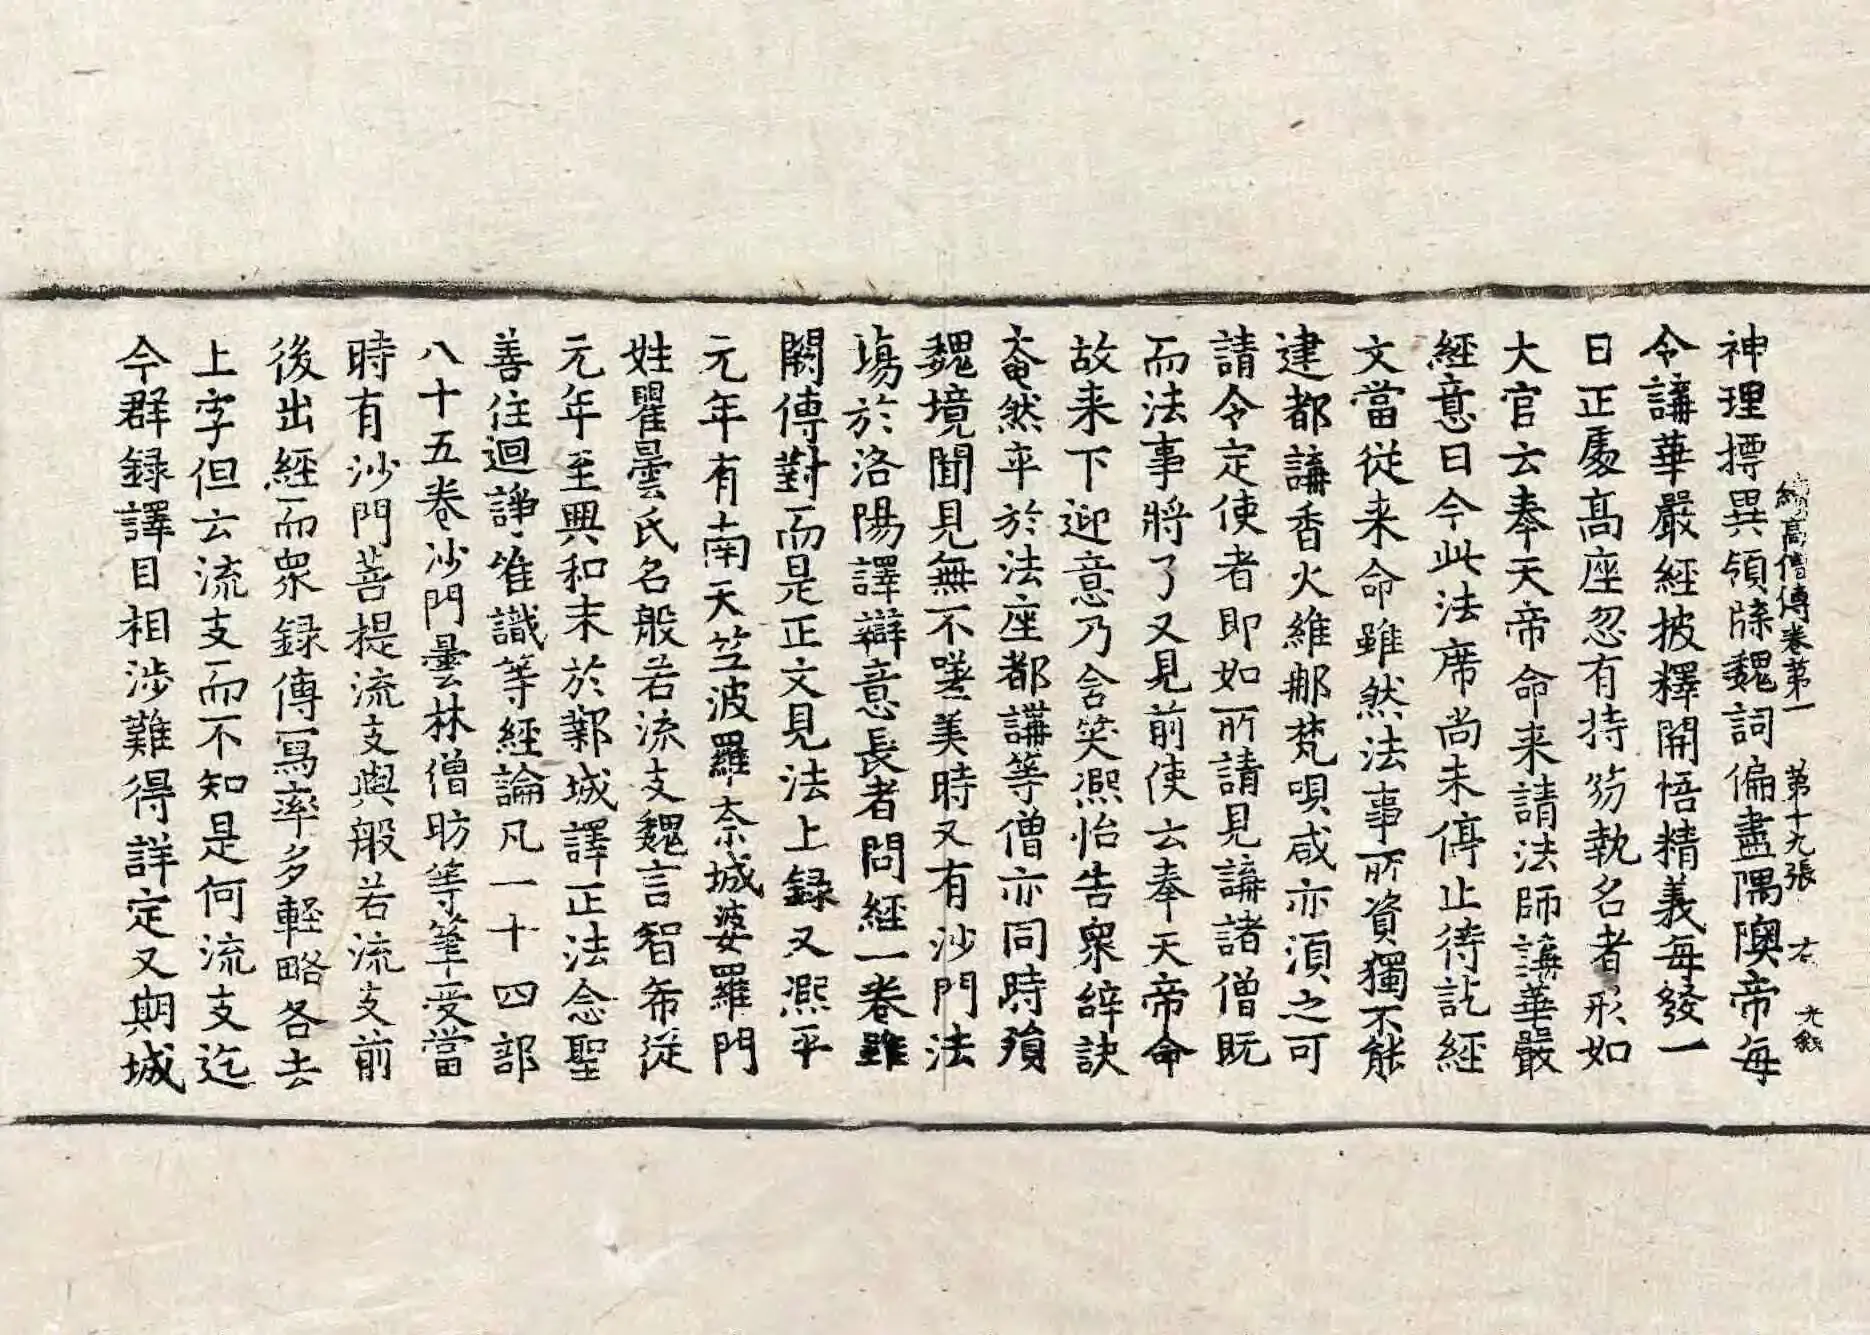 續高僧傳卷第一 第十九張 右
神理摽異領牒魏詞偏盡隅隩帝每
令講華嚴經披釋開悟精義每發一
日正處高座忽有持笏執名者形如
大官云奉天帝命来請法師講華嚴
經意曰今此法席尚未停止待訖經
文當従来命雖然法事所資獨不能
建都講香火維那梵唄咸亦湏之可
請令定使者即如所請見講諸僧既
而法事將了又見前使云奉天帝命
故来下迎意乃含笑熈怡告衆辝訣
奄然卒於法座都講等僧亦同時殞
魏境聞見無不嗟美時又有沙門法
場於洛陽譯辯意長者問經一卷雖
闕傳對而是正文見法上録又熈平
元年有南天笁波羅奈城婆羅門
姓瞿曇氏名般若流支魏言智希従
元年至興和末於鄴城譯正法念聖
善住迴諍唯識等經論凡一十四部
八十五卷沙門曇林僧昉等筆受當
時有沙門菩提流支與般若流支前
後出經而衆録傳寫率多輕略各去
上字但云流支而不知是何流支迄
今群録譯目相涉難得詳定又期城